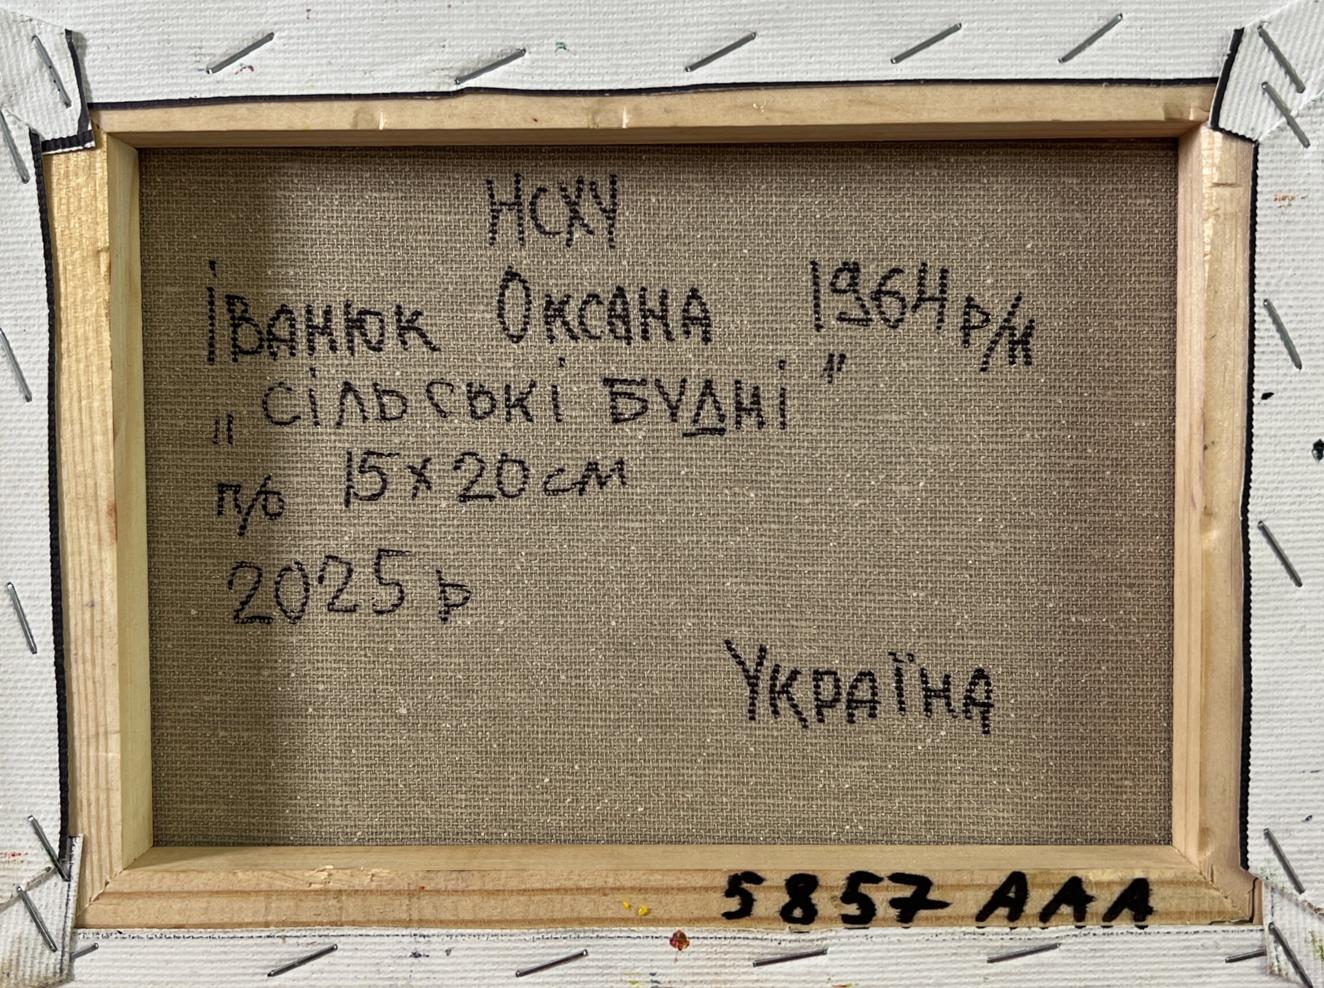 НСХУ
Іванюк Оксана 1964 р/н
„Сільські будні"
п/о 15х20см
2025 р
Україна
5857 ААА